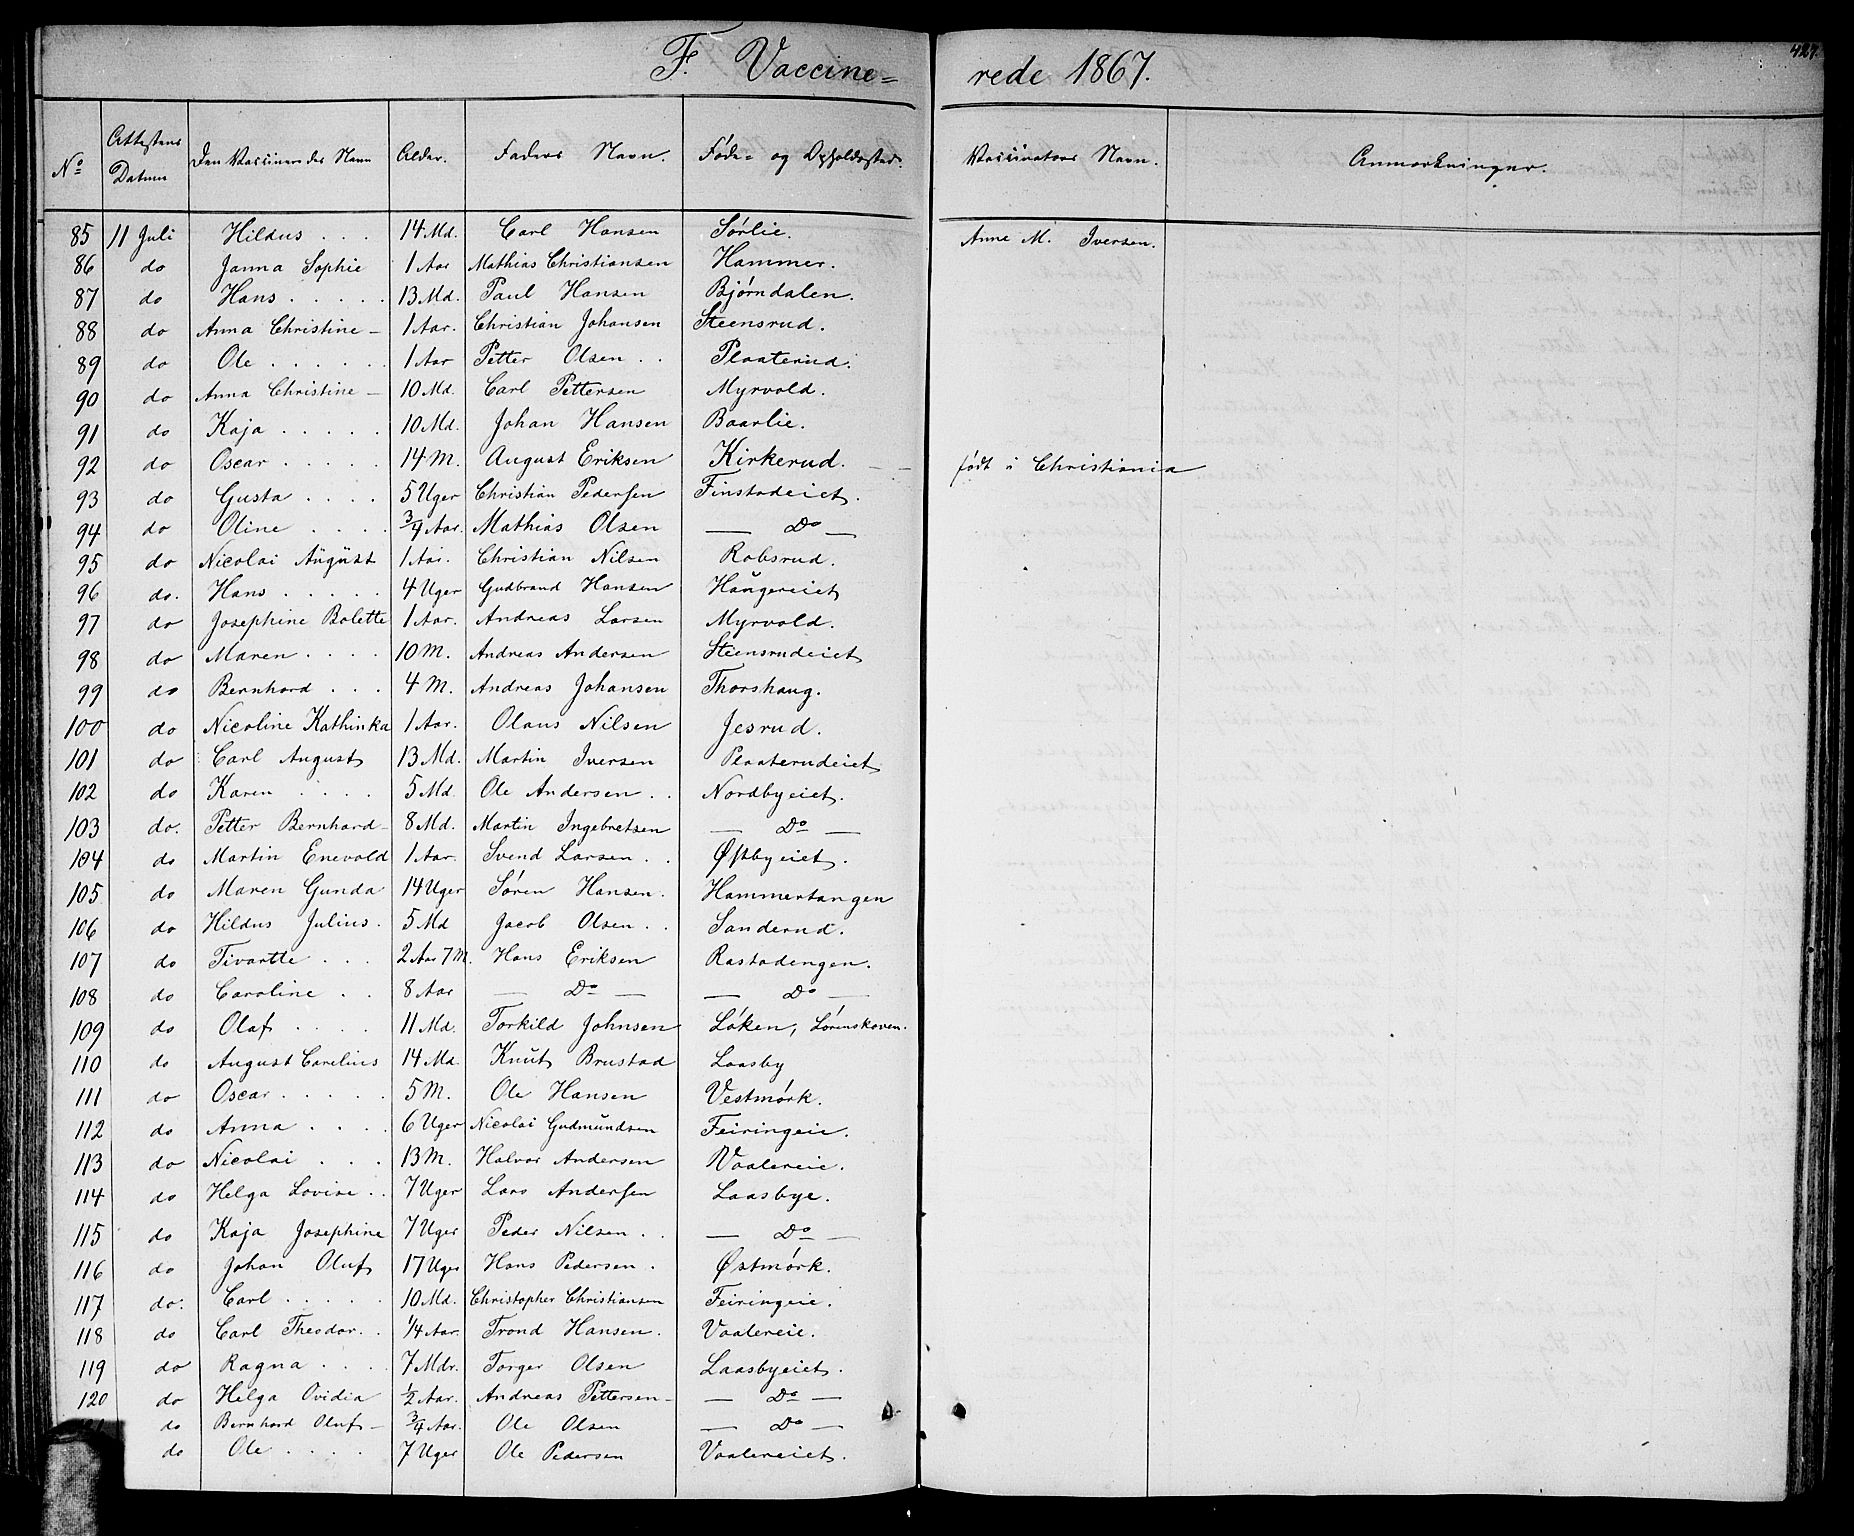 427.
F. Vaccine= rede 1867.
No Attestens Datum Den Vaccineredes Navn Alder. Faders Navn. Føde= og Opholdssted. Vaccinators Navn. Anmærkninger.
85 11 Juli Hildus . . . 14 Md. Carl Hansen Sørlie. Anne M. Iversen.
86 do Janna Sophie 1 Aar Mathias Christiansen Hammer.
87 do Hans . . . . . 13 Md. Paul Hansen Bjørndalen.
88 do Anna Christine – 1 Aar. Christian Johansen Steensrud.
89 do Ole . . . . . . 1 Aar Petter Olsen . . Plaaterud.
90 do Anna Christine – 10 Md. Carl Pettersen Myrvold.
91 do Kaja . . . . . 10 Md. Johan Hansen Baarlie.
92 do Oscar . . . . . 14 M. August Eriksen Kirkerud. – – født i Christiania
93 do Gusta . . . . 5 Uger Christian Pedersen Finstadeiet.
94 do Oline . . . . 3/4 Aar. Mathias Olsen — Do —
95 do Nicolai August 1 Aar. Christian Nilsen Robsrud.
96 do. Hans . . . . . 4 Uger Gudbrand Hansen Haugereiet
97 do Josephine Bolette 1 Aar. Andreas Larsen Myrvold.
98 do Maren . . . . 10 M. Andreas Andersen Steensrudeiet
99 do Bernhard . . . 4 M. Andreas Johansen Thorshaug.
100 do Nicoline Kathinka 1 Aar. Olaus Nilsen Jesrud.
101 do Carl August 13 Md. Martin Iversen Plaaterudeiet
102 do Karen . . . . 5 Md. Ole Andersen . . Nordbyeiet.
103 do. Petter Bernhard – 8 Md. Martin Ingebretsen — Do —
104 do Martin Enevold 1 Aar. Svend Larsen . . Østbyeiet.
105 do Maren Gunda 14 Uger Søren Hansen. Hammertangen
106 do Hildus Julius. 5 Md Jacob Olsen . . Sanderud.
107 do Tivartte . . . 2 Aar 7 M. Hans Eriksen Rastadengen.
108 do Caroline . . 8 Aar — Do — — Do —
109 do Olaf . . . . 11 Md. Torkild Johnsen Løken, Lørenskoven.
110 do August Carelius 14 Md. Knut Brustad Laasby
111 do Oscar . . . . . 5 M. Ole Hansen Vestmørk.
112 do Anna . . . . 6 Uger Nicolai Gudmundsen Feiringeie.
113 do Nicolai . . . 13 M. Halvor Andersen Vaalereie.
114 do Helga Lovise . . 7 Uger Lars Andersen Laasbye.
115 do Kaja Josephine 7 Uger Peder Nilsen . . — Do —
116 do Johan Oluf 17 Uger Hans Pedersen . Østmørk.
117 do. Carl . . . . . 10 Md. Christopher Christiansen Feiringeie.
118 do Carl Theodor . . 1/4 Aar. Trond Hansen. Vaalereie.
119 do Ragna . . . . 7 Mdr. Torger Olsen Laasbyeiet.
120 do Helga Ovidia 1/2 Aar. Andreas Pettersen – — Do —
do Bernhard Oluf – 3/4 Aar. Ole Olsen — Do —
do Ole . . . . 7 Uger Ole Pedersen Vaalereiet.